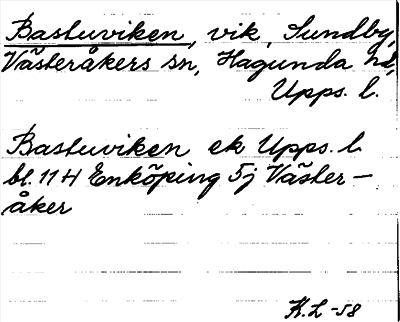 Bastuviken, vik, Sundby,
Västeråkers sn, Hagunda hd,
Upps. l.
Bastuviken ek Upps. l.
bl. 11 H Enköping 5j Väster-
åker
K.L -58